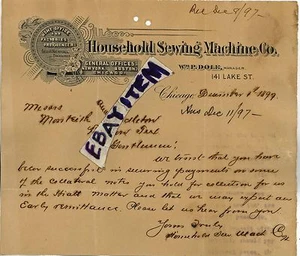 Rec Dec 8/97-
HOME OFFICE
FACTORIES
PROVIDENCE
R.I.
Household Sewing Machine Co.
GENERAL OFFICES
NEW YORK BOSTON
CHICAGO.
WM P. DOLE, MANAGER
141 LAKE ST.
Chicago, December 4th 1897
Ans Dec 11/97-
Messrs
Monteith
Gentlemen:
We trust that you have
been successful in securing payments on some
of the collateral notes you hold for collection for us
in the Hiatt matter and that we may expect an
Early remittance. Please let us hear from you
Yours Truly
Household Sew Mach Co
EBAY ITEM